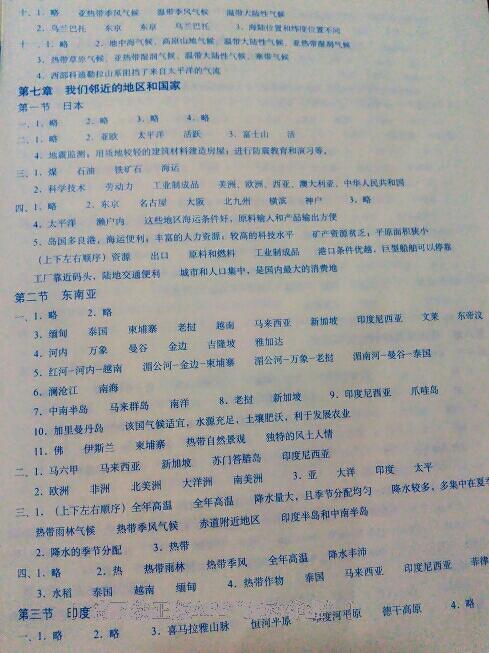 十、1. 略　亚热带季风气候　温带季风气候　温带大陆性气候
2. 乌兰巴托　东京　东京　乌兰巴托　3. 海陆位置和纬度位置不同
十一、1. 略　2. 地中海气候、高原山地气候、温带大陆性气候、亚热带湿润气候
3. 热带草原气候、亚热带湿润气候、温带大陆性气候、寒带气候
4. 西部科迪勒拉山系阻挡了来自太平洋的气流
第七章　我们邻近的地区和国家
第一节　日本
一、1. 略　2. 略　3. 略　4. 略
二、1. 略　2. 亚欧　太平洋　活跃　3. 富士山　活
4. 地震监测；用质地较轻的建筑材料建造房屋；进行防震教育和演习等。
三、1. 煤　石油　铁矿石　海运
2. 科学技术　劳动力　工业制成品　美洲、欧洲、西亚、澳大利亚、中华人民共和国
四、1. 略　2. 东京　名古屋　大阪　北九州　横滨　神户　3. 略
4. 太平洋　濑户内　这些地区海运条件好，原料输入和产品输出方便
5. 岛国多良港，海运便利；丰富的人力资源；较高的科技水平　矿产资源贫乏；平原面积狭小
（上下左右顺序）资源　出口　原料和燃料　工业制成品　港口条件优越，巨型船舶可以停靠
工厂靠近码头，陆地交通便利　城市和人口集中，是国内最大的消费地
第二节　东南亚
一、1. 略　2. 略
3. 缅甸　泰国　柬埔寨　老挝　越南　马来西亚　新加坡　印度尼西亚　文莱　东帝汶
4. 河内　万象　曼谷　金边　吉隆坡　雅加达
5. 红河-河内-越南　湄公河-金边-柬埔寨　湄公河-万象-老挝　湄南河-曼谷-泰国
6. 澜沧江　南海
7. 中南半岛　马来群岛　南洋　8. 老挝　新加坡　9. 印度尼西亚　爪哇岛
10. 加里曼丹岛　该国气候适宜，水源充足，土壤肥沃，利于发展农业
11. 佛　伊斯兰　柬埔寨　热带自然景观　独特的风土人情
二、1. 马六甲　马来西亚　新加坡　苏门答腊岛　印度尼西亚
2. 欧洲　非洲　北美洲　大洋洲　南美洲　3. 亚　大洋　印度　太平
三、1.（上下左右顺序）全年高温　全年高温　降水量大，且季节分配均匀　降水较多，多集中在夏
热带雨林气候　热带季风气候　赤道附近地区　印度半岛和中南半岛
2. 降水的季节分配　3. 热带
四、1. 略　2. 热　热带雨林　热带季风　全年高温　降水丰沛
3. 水稻　泰国　越南　缅甸　4. 热带作物　泰国　马来西亚　印度尼西亚　菲律
第三节　印度
一、1. 略　2. 略　3. 喜马拉雅山脉　恒河平原　印度河平原　德干高原　4. 略